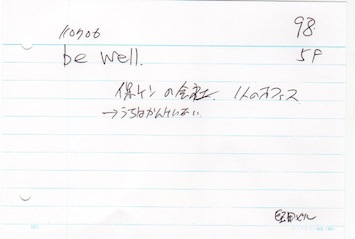 110706
98.
be well.
5F
保ケンの会社. 1人のオフィス
→うちはかんけいない.